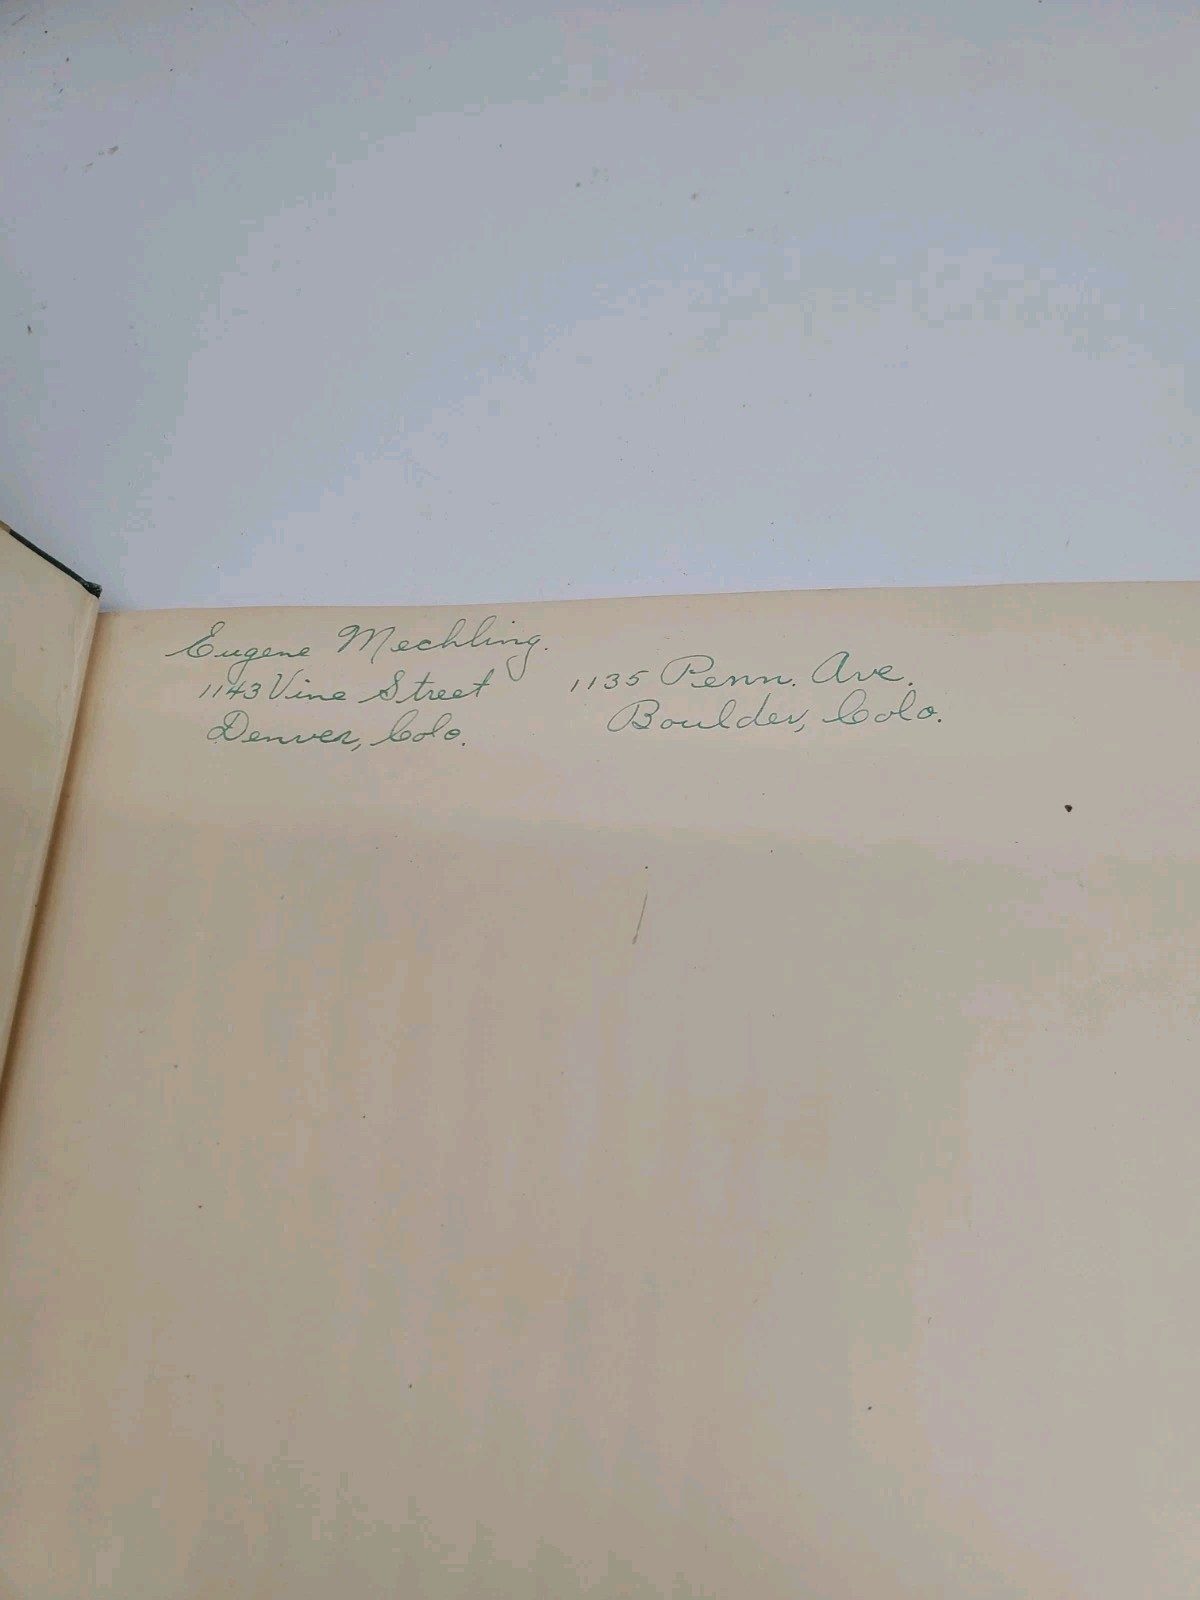 Eugene Mechling.
1143 Vine Street
Denver, Colo.
1135 Penn. Ave.
Boulder, Colo.